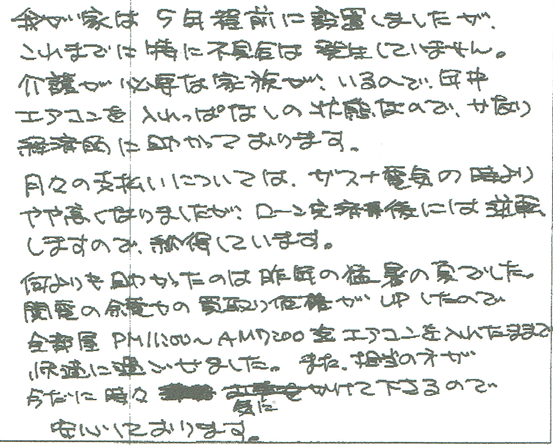 我が家は5年程前に設置しましたが、
これまでに特に不具合は発生していません。
介護が必要な家族が、いるので、日中
エアコンを入れっぱなしの状態なので、かなり
経済的に助かっております。
月々の支払いについては、ガス+電気の時より
やや高くなりましたが、ローン完済後には逆転
しますので、納得しています。
何よりも助かったのは昨年の猛暑の夏でした。
関電の余電力の買取り価格がUPしたので
全部屋PM11:00~AM7:00迄エアコンを入れたままで
快適に過ごせました。また、担当の方が
今だに時々気にかけて下さるので
安心しております。